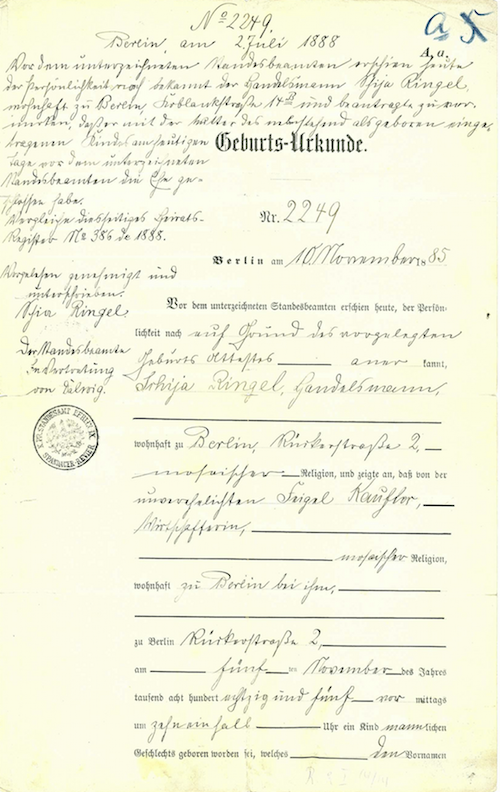 No 2249.
Berlin, am 2 Juli 1888
a 5
A, a.
Vor dem unterzeichneten Standesbeamten erschien heute
der Persönlichkeit nach bekannt der Handelsmann Schija Ringel,
wohnhaft zu Berlin, Koblankstraße 14 und beantragte zu ver-
merken, daß er mit der Mutter des nebenstehend als geboren einge-
tragenen Kindes am heutigen
Tage vor dem unterzeichneten
Standesbeamten die Ehe ge-
schlossen habe.
Vergleiche diesseitiges Heirats-
Register No 386 de 1888.
Vorgelesen genehmigt und
unterschrieben.
Schia Ringel
Der Standesbeamte
In Vertretung
von
Geburts-Urkunde.
Nr. 2249
Berlin am 10. November 1885
Vor dem unterzeichneten Standesbeamten erschien heute, der Persön-
lichkeit nach auf Grund des vorgelegten
Geburts Attestes aner kannt,
Schija Ringel, Handelsmann,
wohnhaft zu Berlin, Rückerstraße 2,
mosaischer Religion, und zeigte an, daß von der
unverehelichten Feigel Kauflor,
Wirtschafterin,
mosaischer Religion,
wohnhaft zu Berlin bei ihm,
zu Berlin Rückerstraße 2,
am fünf ten November des Jahres
tausend acht hundert achtzig und fünf vor mittags
um zehn einhalb Uhr ein Kind männlichen
Geschlechts geboren worden sei, welches den Vornamen